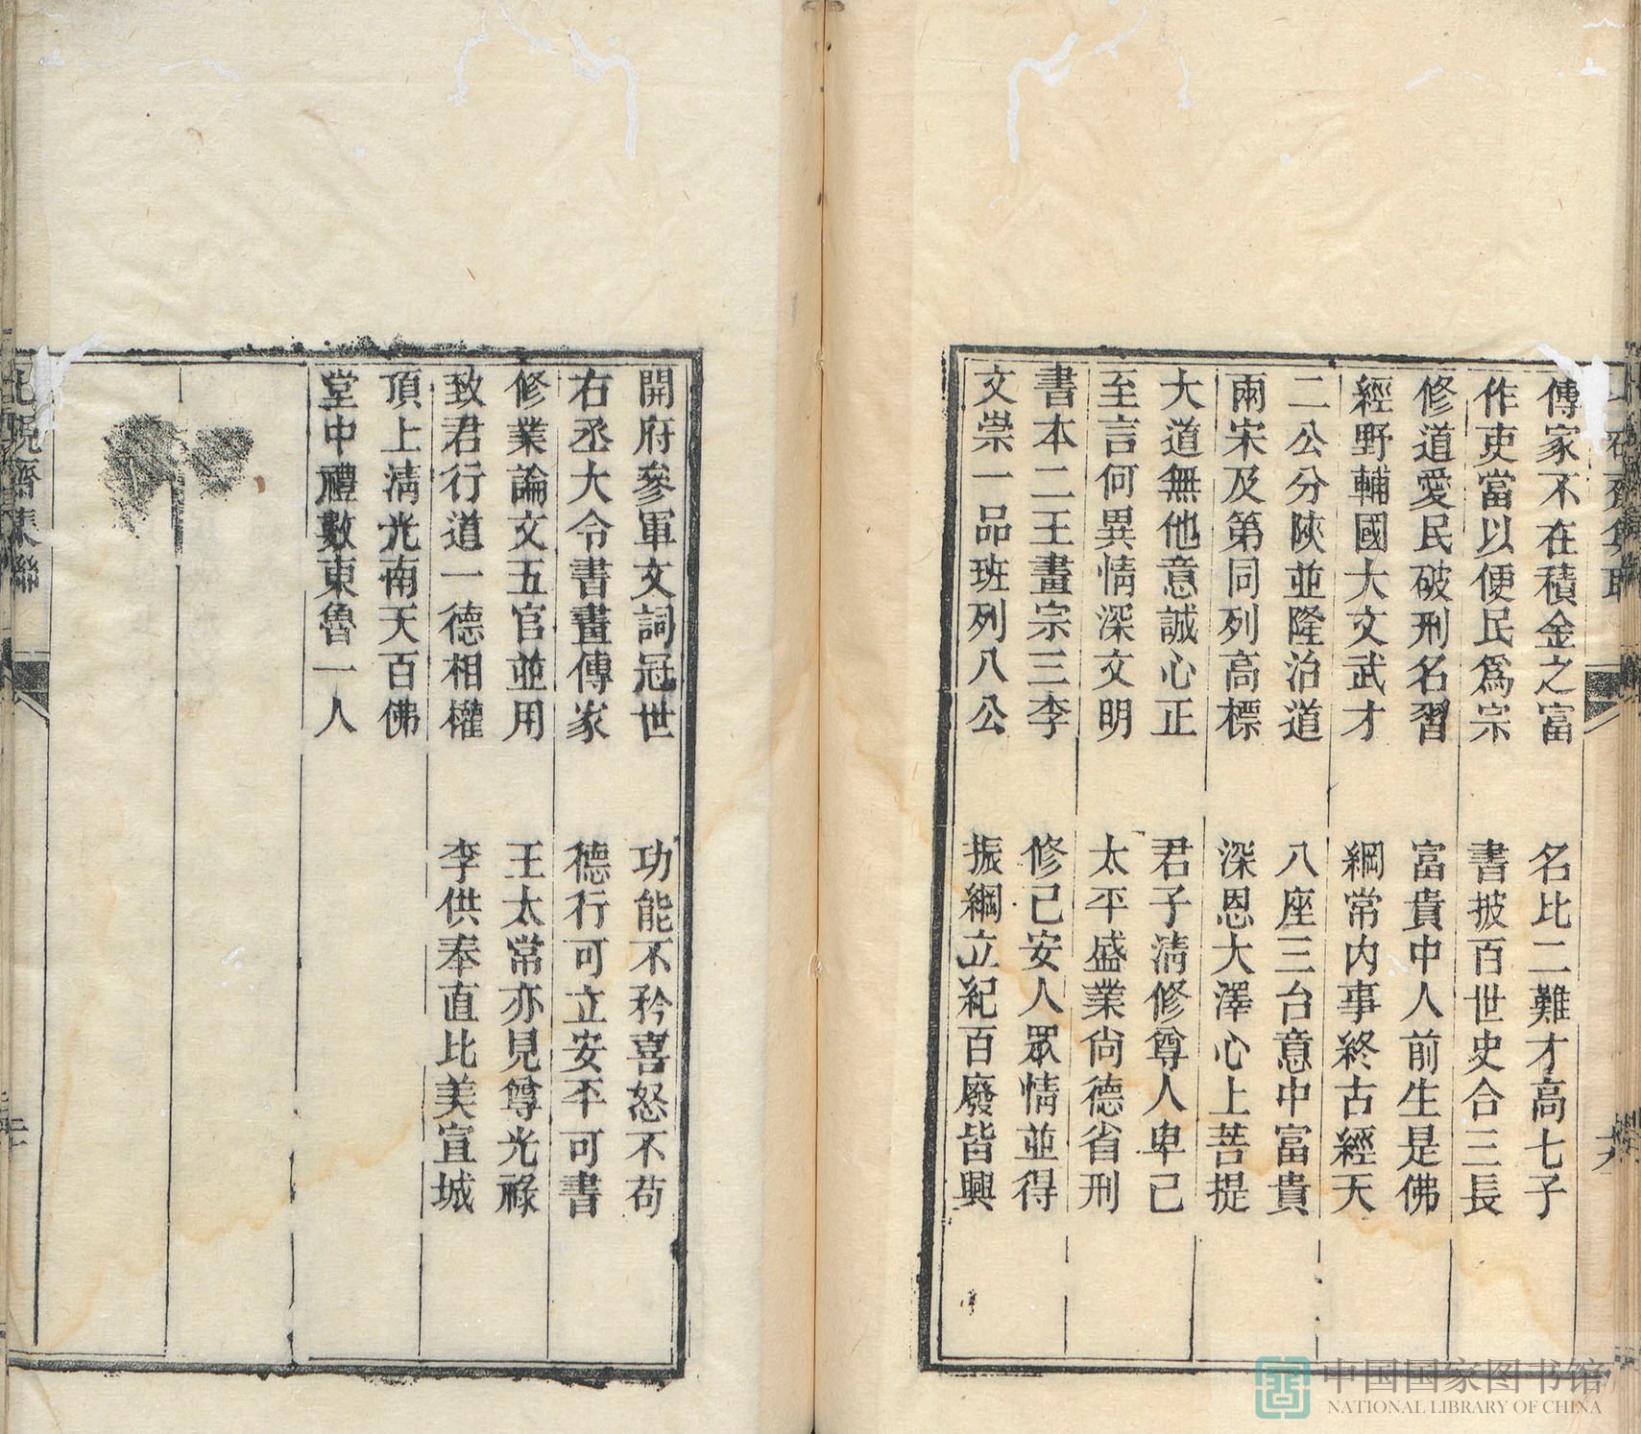 傳家不在積金之富　名比二難才高七子
作吏當以便民爲宗　書披百世史合三長
修道愛民破刑名習　富貴中人前生是佛
經野輔國大文武才　綱常内事終古經天
二公分陝並隆治道　八座三台意中富貴
兩宋及第同列高標　深恩大澤心上菩提
大道無他意誠心正　君子淸修尊人卑己
至言何異情深文明　太平盛業尙德省刑
書本二王畫宗三李　修己安人眾情並得
文崇一品班列八公　振綱立紀百廢皆興
開府參軍文詞冠世　功能不矜喜怒不苟
右丞大令書畫傳家　德行可立安平可書
修業論文五官並用　王太常亦見尊光祿
致君行道一德相權　李供奉直比美宣城
頂上淸光南天百佛
堂中禮數東魯一人
中国国家图书馆
NATIONAL LIBRARY OF CHINA